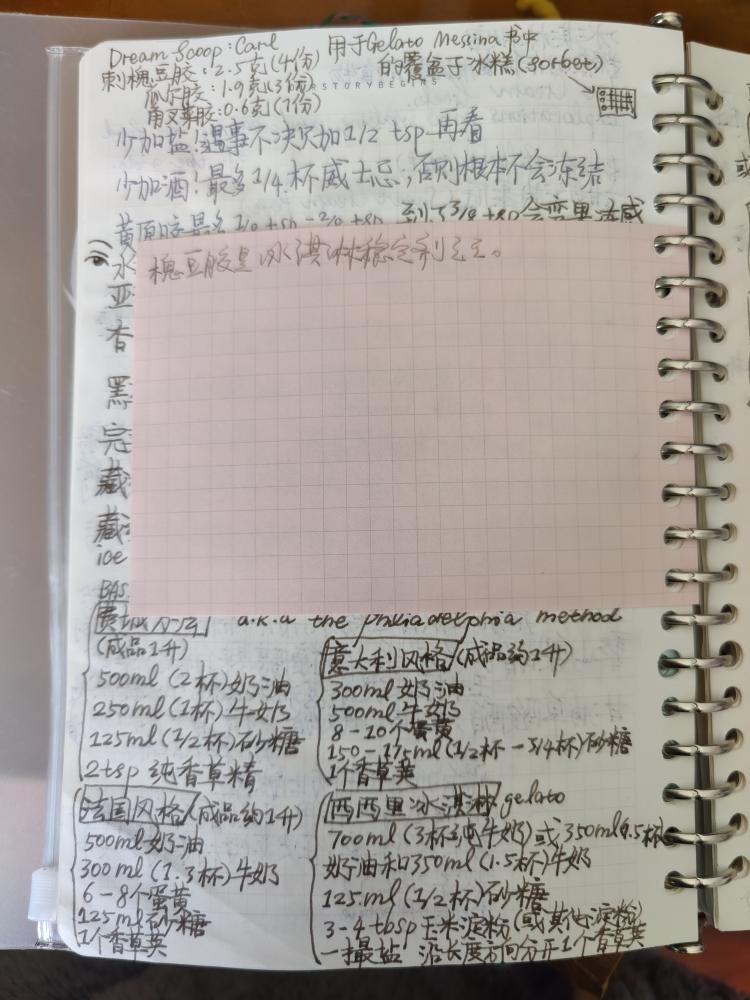 Dream Scoop: Carl 用于Gelato Messina书中
刺槐豆胶: 2.5克(4份) 的覆盆子冰糕(sorbet)
瓜尔胶: 1.9克(3份)
RSTORYBEGINS
角叉菜胶: 0.6克(1份)
少加盐!遇事不决只加1/2 tsp再看
少加酒!最多1/4杯威士忌,否则根本不会冻结
黄原胶
水
槐豆胶是冰淇淋稳定剂之王。
亚
香
黑
完
藏
藏
ice
BAS
费城 a.k.a the philadelphia method
(成品1升)
500ml(2杯)奶油
250ml(1杯)牛奶
125ml(1/2杯)砂糖
2tsp 纯香草精
意大利风格(成品约1升)
300ml奶油
500ml牛奶
8-10个蛋黄
150-175ml(1/2杯-3/4杯)砂糖
1个香草荚
法国风格(成品约1升)
500ml奶油
300ml(1.3杯)牛奶
6-8个蛋黄
125ml砂糖
1个香草荚
西西里冰淇淋 gelato
700ml(3杯纯牛奶)或350ml(1.5杯)
奶油和350ml(1.5杯)牛奶
125ml(1/2杯)砂糖
3-4tbsp玉米淀粉(或其他淀粉)
一撮盐 沿长度方向分开1个香草荚